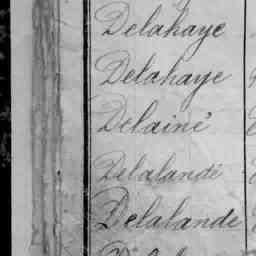 Delahaye
Delahaye
Delainé
Delalande
Delalande